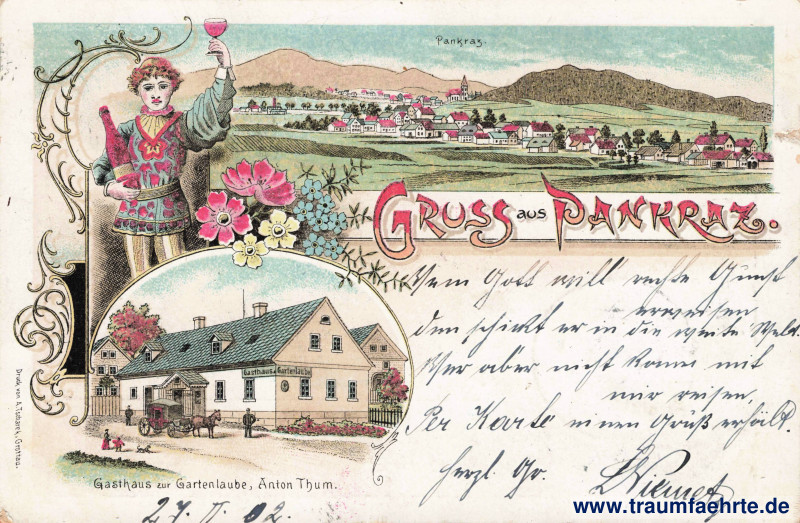 Pankraz.
GRUSS aus PANKRAZ.
Wem Gott will rechte Gunst
erweisen
den schickt er in die weite Welt.
Wer aber nicht kann mit
mir reisen,
Per Karte einen Gruß erhält.
Herzl. Gr.
Gasthaus z. Gartenlaube
Gasthaus zur Gartenlaube, Anton Thum.
27. II. 02.
Druck von A. Tschörch, Grottau.
www.traumfaehrte.de